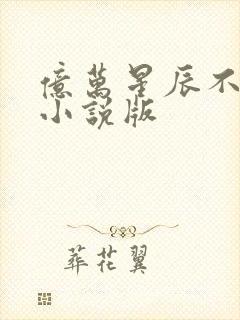 億萬星辰不
小說版
葬花翼